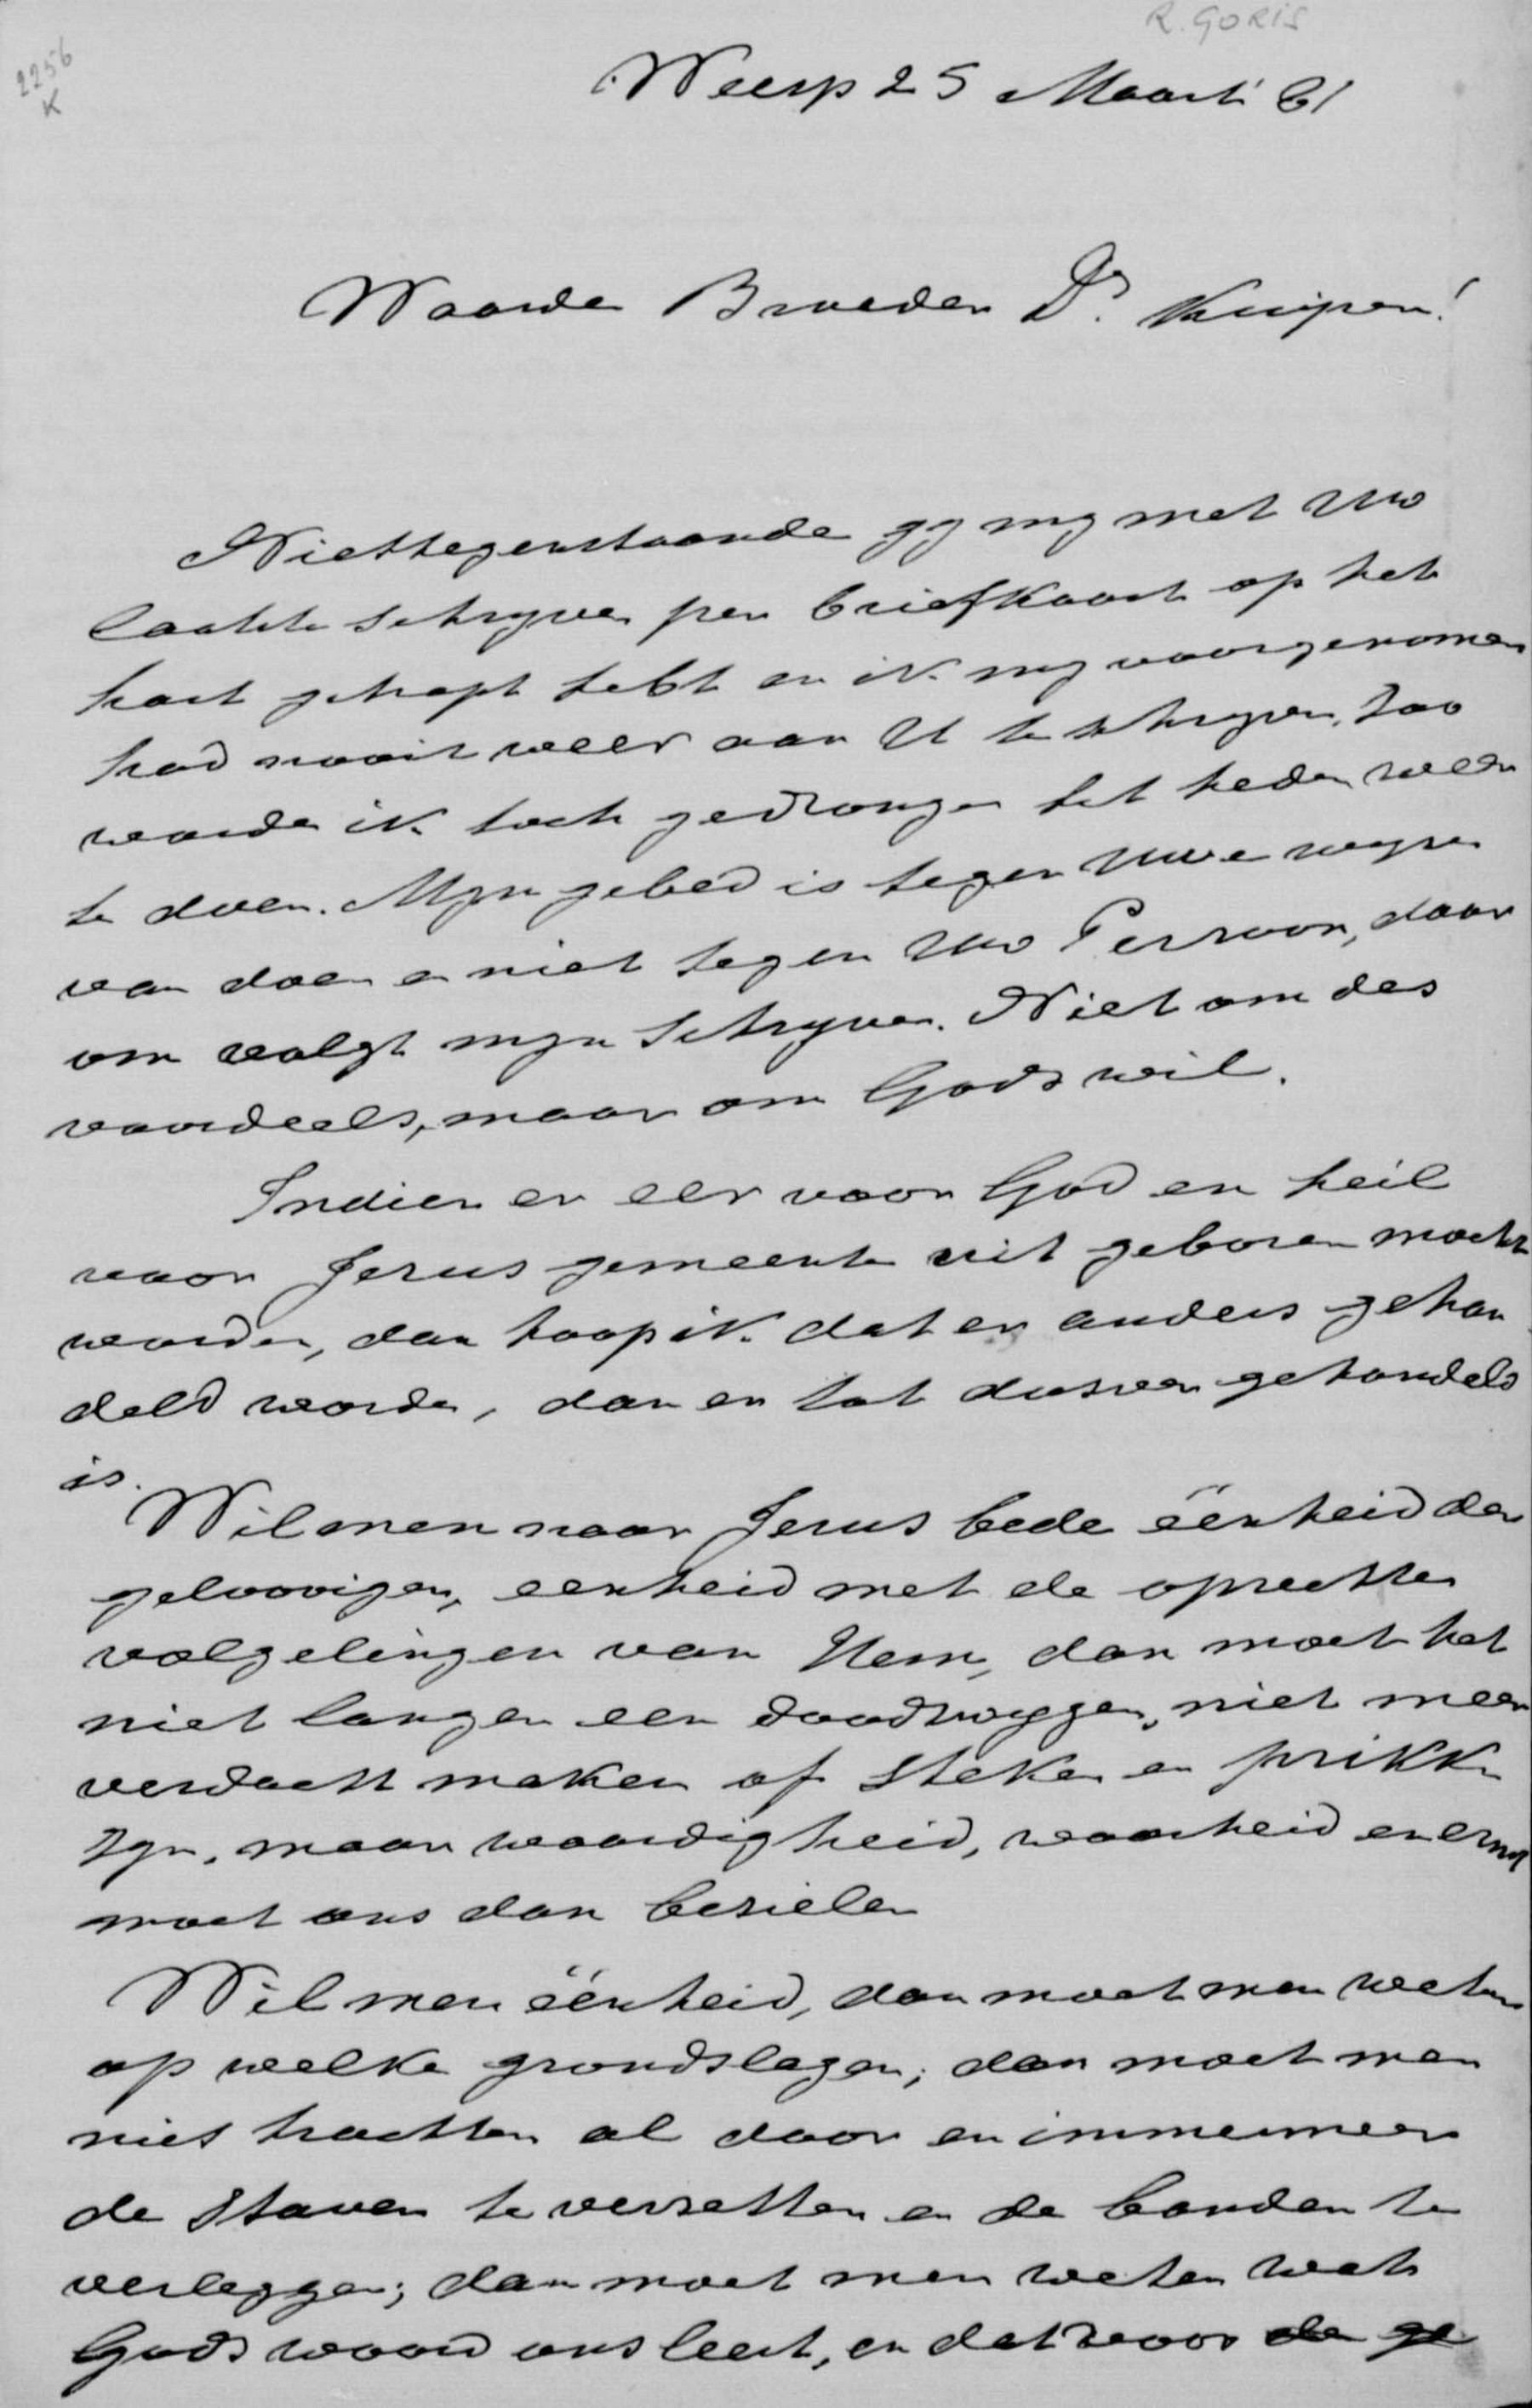 R. GORIS
2256
K
Weesp 25 Maart '81
Waarde Broeder Dr. Kuiper!
Niettegenstaande gy my met Uw
laatste schryven per briefkaart op het
hart getrapt hebt en ik my voorgenomen
had nooit weer aan U te schryven, zoo
worde ik toch gedrongen het heden weer
te doen. Myn gebed is tegen Uwe wyze
van doen en niet tegen Uw Persoon, daar
om volgt myn schryven. Niet om des
voordeels, maar om Gods wil.
Indien er eer voor God en heil
voor Jezus gemeente uit geboren mocht
worden, dan hoop ik dat er anders gehan
deld worde, dan er tot dusver gehandeld
is.
Wil men naar Jezus bede éénheid der
geloovigen, eenheid met de oprechte
volgelingen van Hem, dan moet het
niet langer een doodzwygen, niet meer
verdacht maken of steken en prikken
zyn, maar waardigheid, waarheid en ernst
moet ons dan bezielen
Wil men éénheid, dan moet men weten
op welke grondslagen; dan moet men
niet trachten al door en immermeer
de staven te verzetten en de banden te
verleggen; dan moet men weten wat
Gods woord ons leert, en dat voor de ge